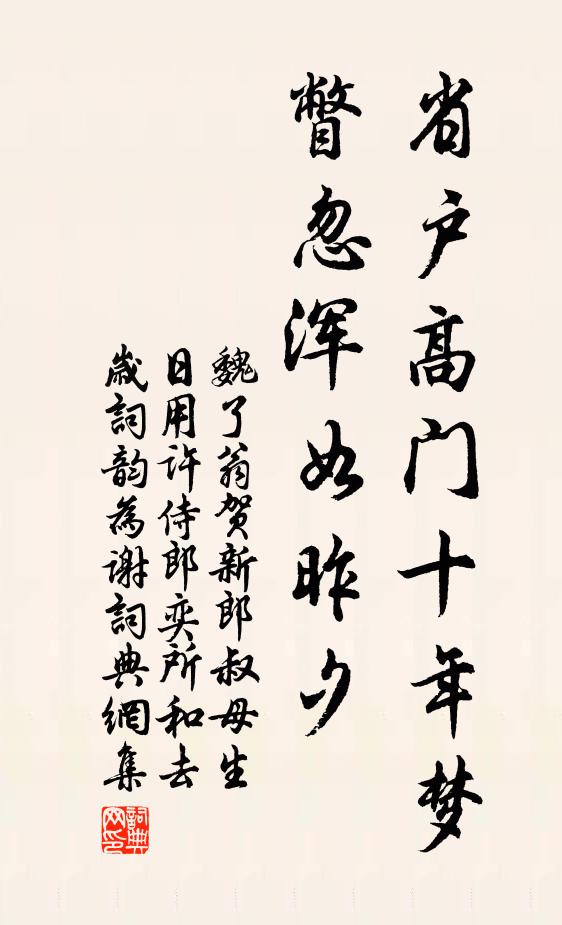 省户高门十年梦
瞥忽浑如昨夕
魏了翁贺新郎叔母生
日用许侍郎奕所和去
歲詞韵為谢詞典網集
詞典网印